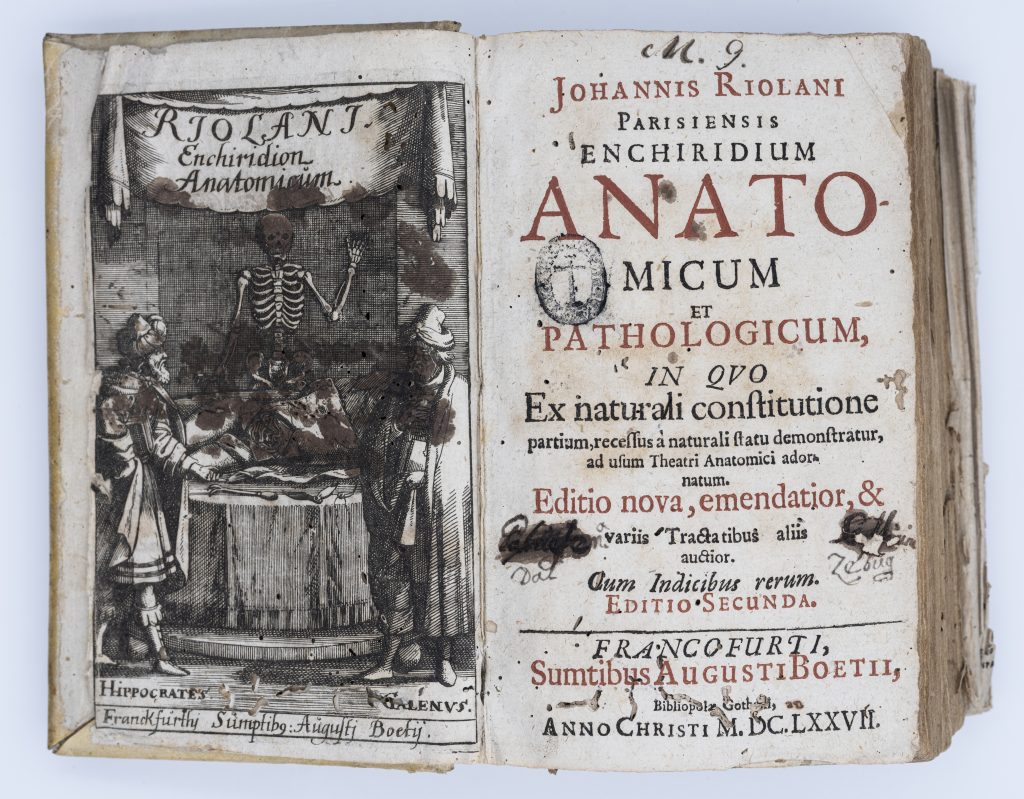 RIOLANI.
Enchiridion
Anatomicum
HIPPOCRATES
GALENVS.
Franckfurthy Sumptib9: Augusti Boetij.
M. 9.
JOHANNIS RIOLANI
PARISIENSIS
ENCHIRIDIUM
ANATO-
MICUM
ET
PATHOLOGICUM,
IN QVO
Ex naturali conſtitutione
partium, receſſus à naturali ſtatu demonſtratur,
ad uſum Theatri Anatomici ador-
natum.
Editio nova, emendatior, &
variis Tractatibus aliis
auctior.
Cum Indicibus rerum.
EDITIO SECUNDA.
FRANCOFURTI,
Sumtibus AUGUSTI BOETII,
Bibliopolæ
ANNO CHRISTI M. DC. LXXVII.